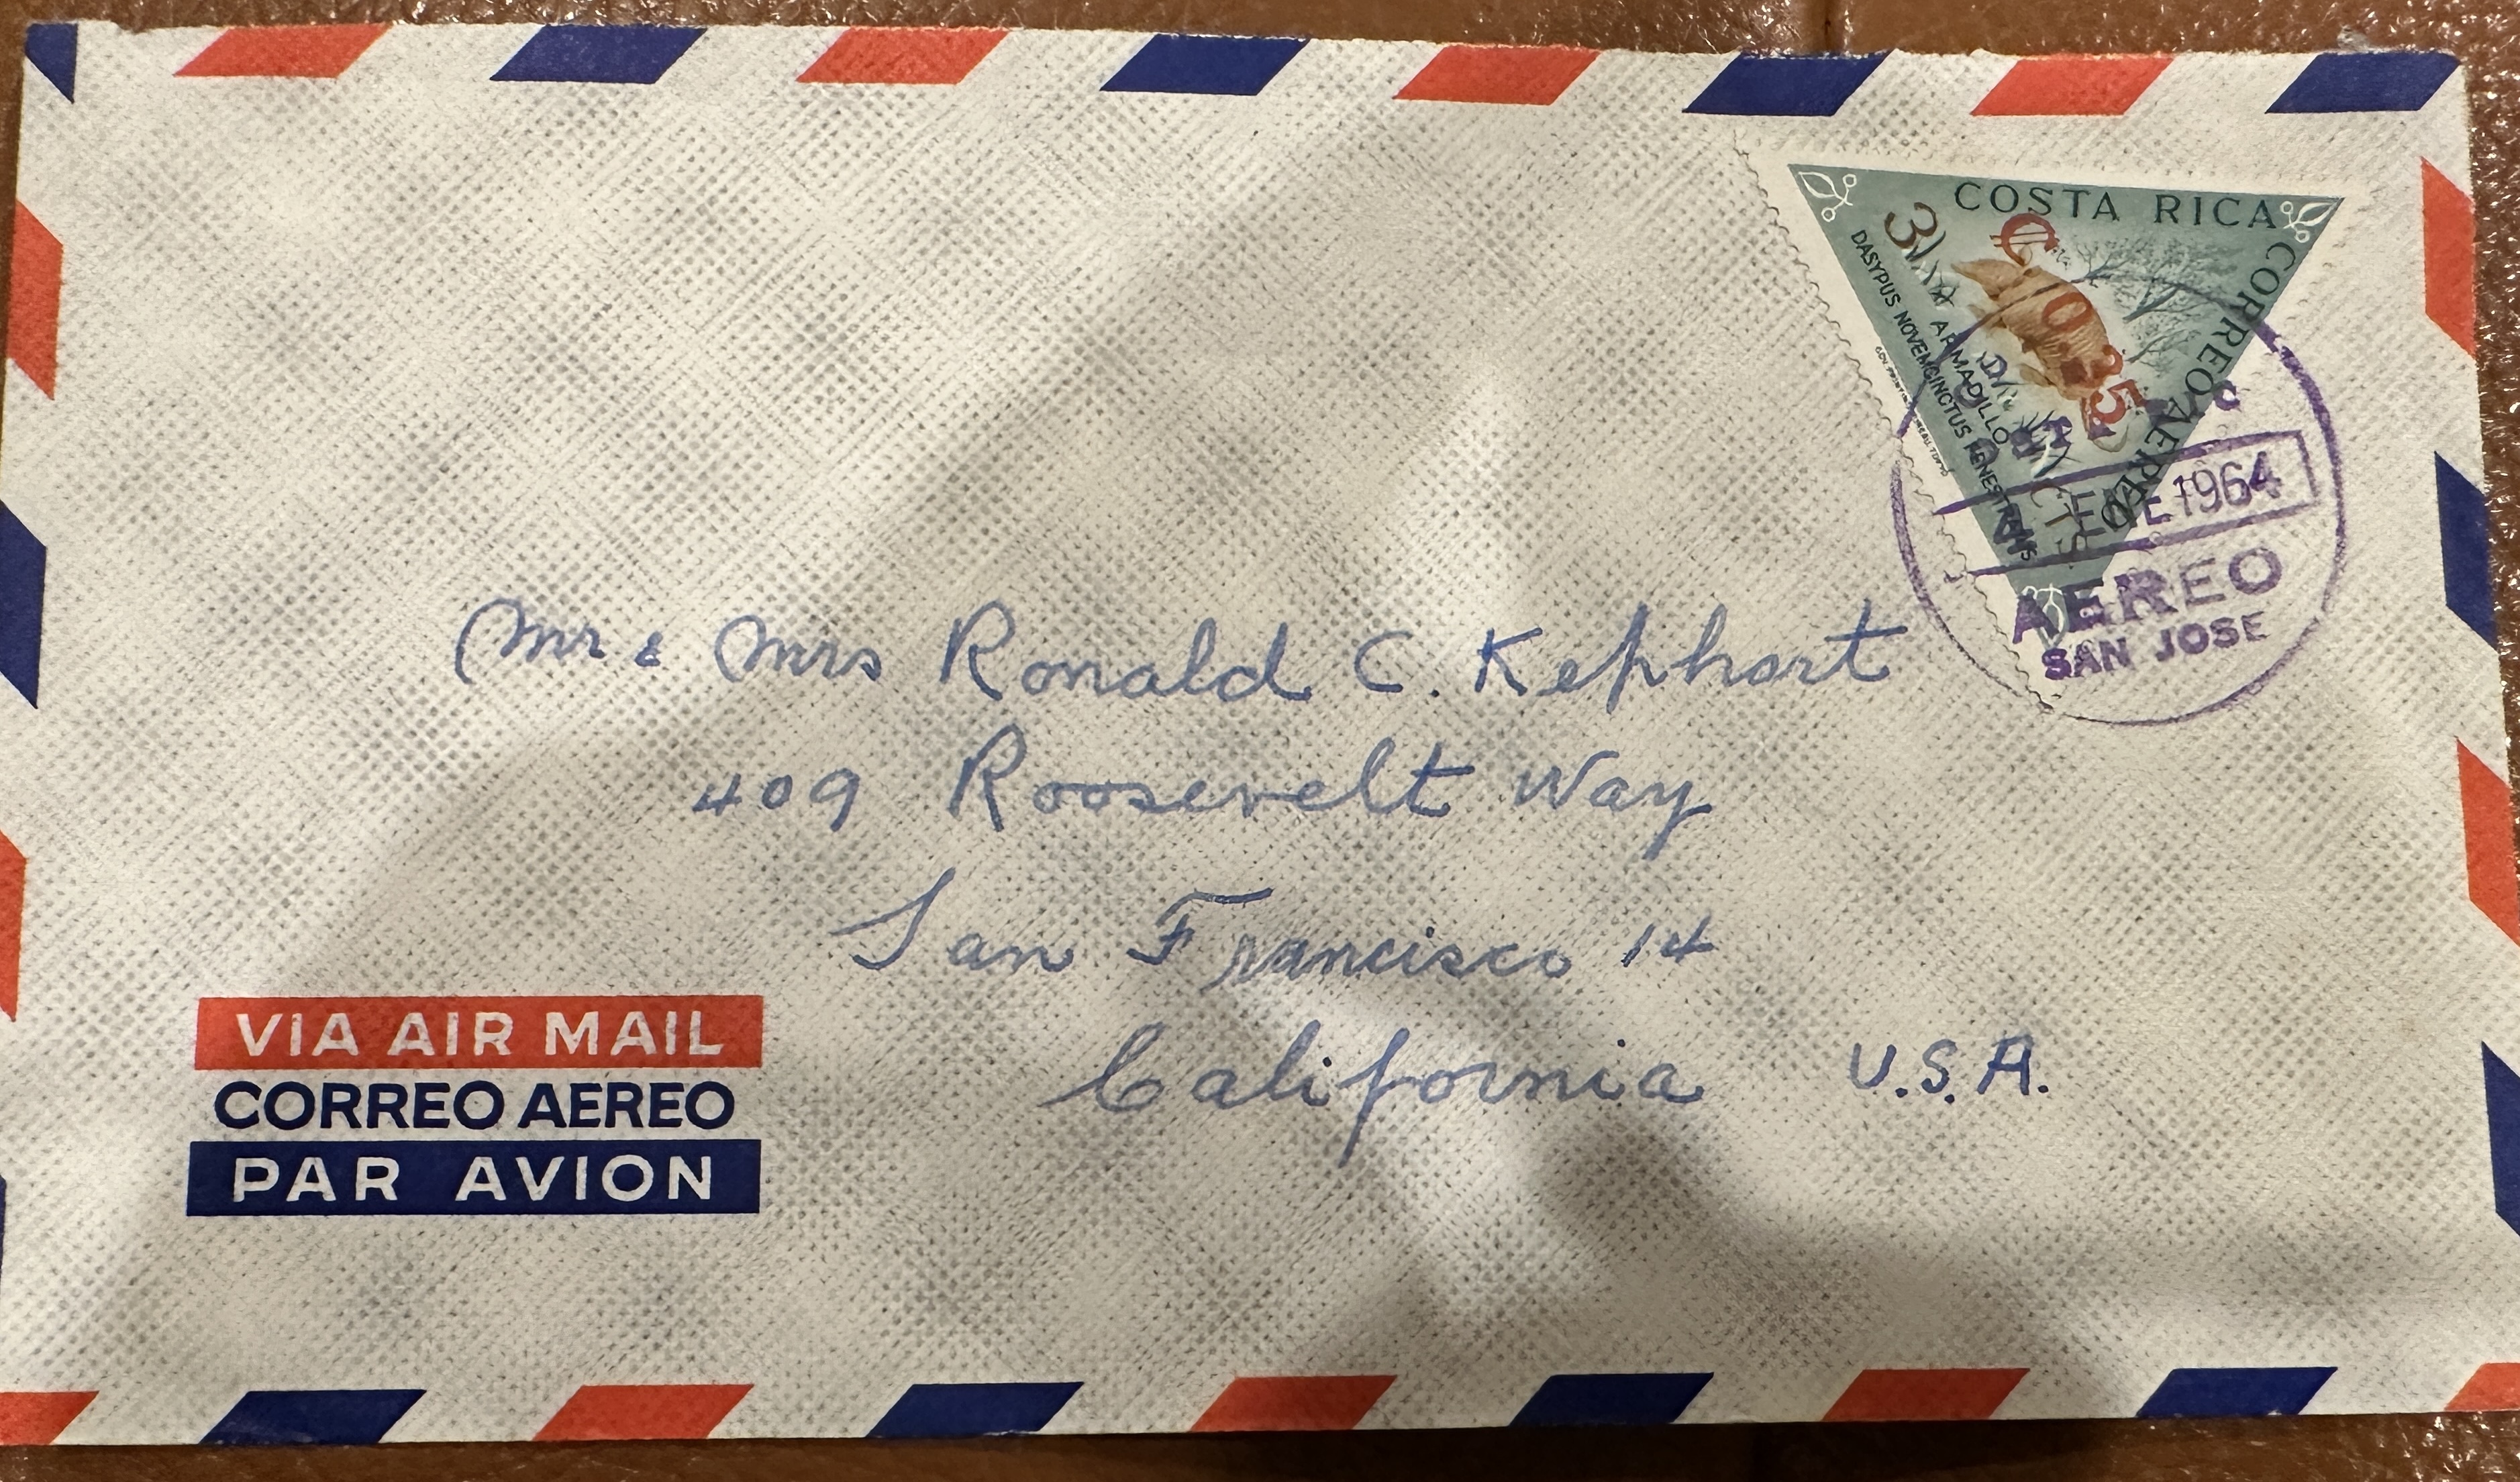 COSTA RICA
CORREO AEREO
C 0.35
ARMADILLO
DASYPUS NOVEMCINCTUS FENESTRATUS
ENE 1964
AEREO
SAN JOSE
Mr & Mrs Ronald C. Kephart
409 Roosevelt Way
San Francisco 14
California U.S.A.
VIA AIR MAIL
CORREO AEREO
PAR AVION